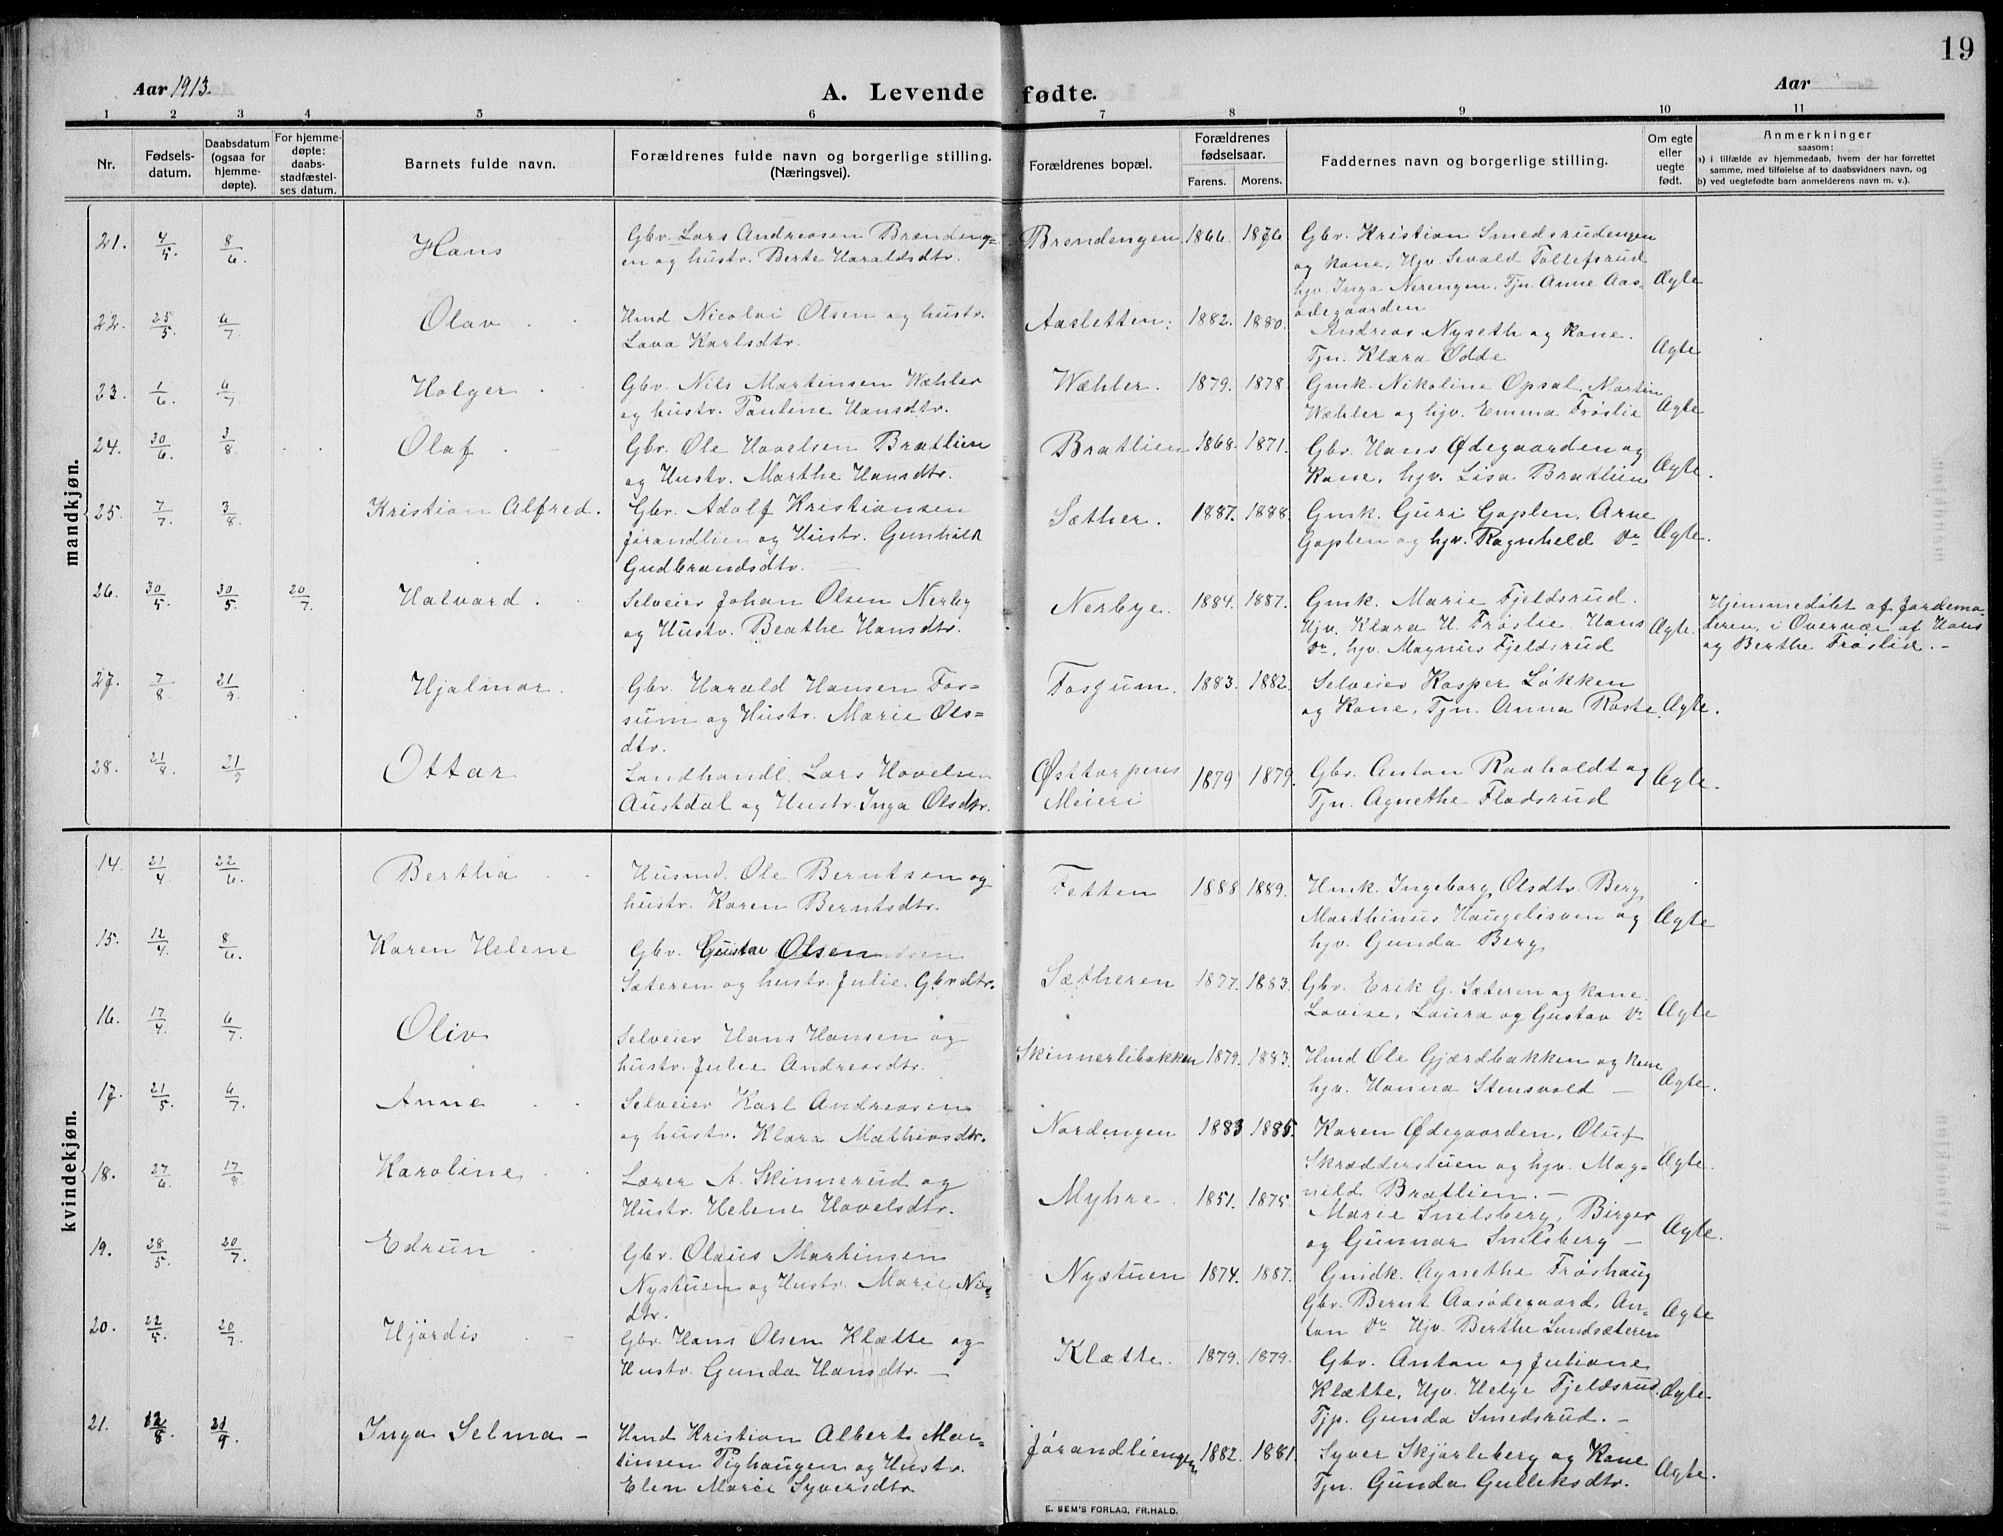 19
Aar 1913.
A. Levende fødte.
Aar
1 2 3 4 5 6 7 8 9 10 11
Nr.
Fødsels-
datum.
Daabsdatum
(ogsaa for
hjemme-
døpte).
For hjemme-
døpte:
daabs-
stadfæstel-
ses datum.
Barnets fulde navn.
Forældrenes fulde navn og borgerlige stilling.
(Næringsvei).
Forældrenes bopæl.
Forældrenes
fødselsaar.
Farens. Morens.
Faddernes navn og borgerlige stilling.
Om egte
eller
uegte
født.
Anmerkninger
saasom:
a) i tilfælde av hjemmedaab, hvem der har forrettet
samme, med tilføielse af to daabsvidners navn, og
b) ved uegtefødte barn anmelderens navn m. v.).
mandkjøn.
21. 4/5 8/6 Hans
Gbr. Lars Andreasen Brændeng-
en og hustr. Berte Haraldsdtr.
Brendengen 1866. 1876
Gbr. Kristian Smedsrudengen
og kone, Hjv. Sevald Tollefsrud
hjv. Inga Nerengen, Tjn. Anne Aas-
ødegaarden
Ægte
22. 25/5 6/7 Olav
Hmd Nicolai Olsen og hustr.
Lava Karlsdtr.
Aasletten: 1882. 1880.
Andreas Nyseth og Kone.
Tjn. Klara Odde
Ægte
23. 1/6 6/7 Holger
Gbr. Nils Martinsen Wæhler
og hustr. Pauline Hansdtr.
Wæhler. 1879. 1878
Gmk. Nikoline Opsal, Martin
Wæhler og hjv. Emma Frøslie
Ægte
24. 30/6 3/8 Olaf
Gbr. Ole Hovelsen Bratlien
og Hustr. Marthe Hansdtr.
Bratlien 1868. 1871.
Gbr. Hans Ødegaarden og
Kone, hjv. Lisa Bratlien
Ægte.
25. 7/7 3/8 Kristian Alfred.
Gbr. Adolf Kristiansen
Jørandlien og Hustr. Gunhild
Gudbrandsdtr.
Sæther. 1887. 1888
Gmk. Guri Goplen, Arne
Goplen og hjv. Ragnheld Do
Ægte.
26. 30/5 30/5 20/7 Halvard.
Selveier Johan Olsen Nerby
og Hustr. Beathe Hansdtr.
Nerbye. 1884. 1887.
Gmk. Marie Fjeldsrud.
Hjv. Klara H. Frøslie. Hans
Do, hjv. Magnus Fjeldsrud
Ægte.
Hjemmedøbt af Jordemo-
deren, i Overvær af Hans
og Berthe Frøslie.-
27. 7/8 21/9 Hjalmar.
Gbr. Harald Hansen Fos-
sum og Hustr. Marie Ols-
dtr.
Fossum. 1883. 1882.
Selveier Kasper Løkken
og Kone, Tjn. Anna Roste
Ægte.
28. 21/8 21/9 Ottar
Landhandl. Lars Hovelsen
Austdal og Hustr. Inga Olsdtr.
Østtorpens
Meieri
1879 1879.
Gbr. Anton Raaholdt og
Tjn. Agnethe Fladsrud
Ægte.
kvindekjøn.
14. 21/4 22/6 Berthia
Husmd. Ole Berntsen og
hustr. Karen Berntsdtr.
Fetten 1888 1889.
Hmk. Ingeborg Olsdtr. Berg,
Marthinus Haugelisven og
hjv. Gunda Berg
Ægte
15. 12/4 8/6 Karen Helene
Gbr. Gustav Olsen
Sæteren og hustr. Julie Gbrdtr.
Sætheren 1877. 1883.
Gbr. Erik G. Sæteren og kone
Lovise, Laura og Gustav Do
Ægte
16. 17/4 6/7 Oliv
Selveier Hans Hansen og
hustr. Julie Andreasdtr.
Skinnerlibakken 1879. 1883.
Hmd Ole Gjærdbakken og kone
hjv. Hanna Stensvold -
Ægte.
17. 21/5 6/7 Anne
Selveier Karl Andreasen
og hustr. Klara Mathiasdtr.
Nordengen 1883 1885.
Karen Ødegaarden, Oluf
Skrædderstuen og hjv. Mag-
nild Bratlien. -
Ægte.
18. 27/6 17/8 Karoline
Lærer A. Skinnerud og
Hustr. Helene Hovelsdtr.
Myhre. 1851. 1875
Marie Snilsberg, Birger
og Gunnar Snilsberg -
Ægte.
19. 28/5 20/7 Edrun
Gbr. Olaus Martinsen
Nystuen og Hustr. Marie
dtr.
Nystuen 1874. 1887.
Gmdk. Agnethe Frøshaug
Gbr. Bernt Aasødegaard, An-
ton Do Hjv. Berthe Lundsæteren
Ægte
20. 22/5 20/7 Hjørdis
Gbr. Hans Olsen Klætte og
Hustr. Gunda Hansdtr. -
Klætte. 1879. 1879.
Gbr. Anton og Juliane
Klætte, Hjv. Helge Fjeldsrud,
Tjp. Gunda Smedsrud. -
Ægte.
21. 12/8 21/9. Inga Selma -
Hmd Kristian Albert Mar-
tinsen Pighaugen og Hustr.
Elen Marie Syversdtr
Jørandliengen 1882. 1881.
Syver Skjærleberg og Kone
Tjn. Gunda Gulleksdtr.
Ægte.
E. SEM'S FORLAG, FR.HALD.